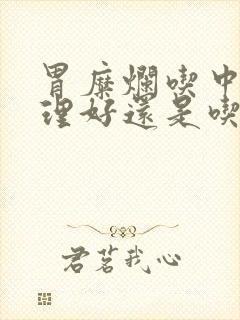 胃糜爛喫中
理好還是喫
君茗我心